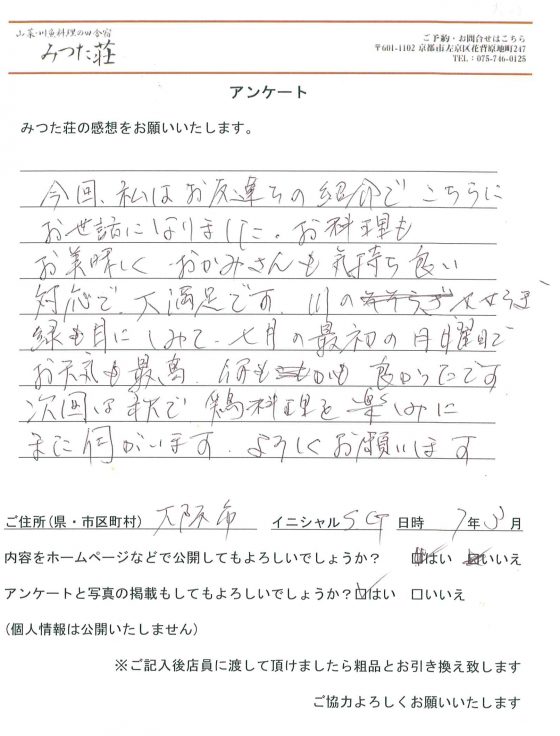 山菜・川魚料理の田舎宿
みつた荘
ご予約・お問合せはこちら
〒601-1102 京都市左京区花背原地町247
TEL：075-746-0125
アンケート
みつた荘の感想をお願いいたします。
今回、私はお友達ちの紹介で こちらに
お世話になりました。お料理も
お美味しく おかみさんも 気持ち良い
対応で、大満足です。川の せせらぎ
緑も目にしみて、七月の最初の日曜日で
お天気も最高、何も かも 良かったです
次回は秋で 鶏料理を楽しみに
また伺がいます。よろしくお願いします
ご住所(県・市区町村) 大阪市 イニシャル SG 日時 7年 月
内容をホームページなどで公開してもよろしいでしょうか？ □はい □いいえ
アンケートと写真の掲載もしてもよろしいでしょうか？☑はい □いいえ
(個人情報は公開いたしません)
※ご記入後店員に渡して頂けましたら粗品とお引き換え致します
ご協力よろしくお願いいたします